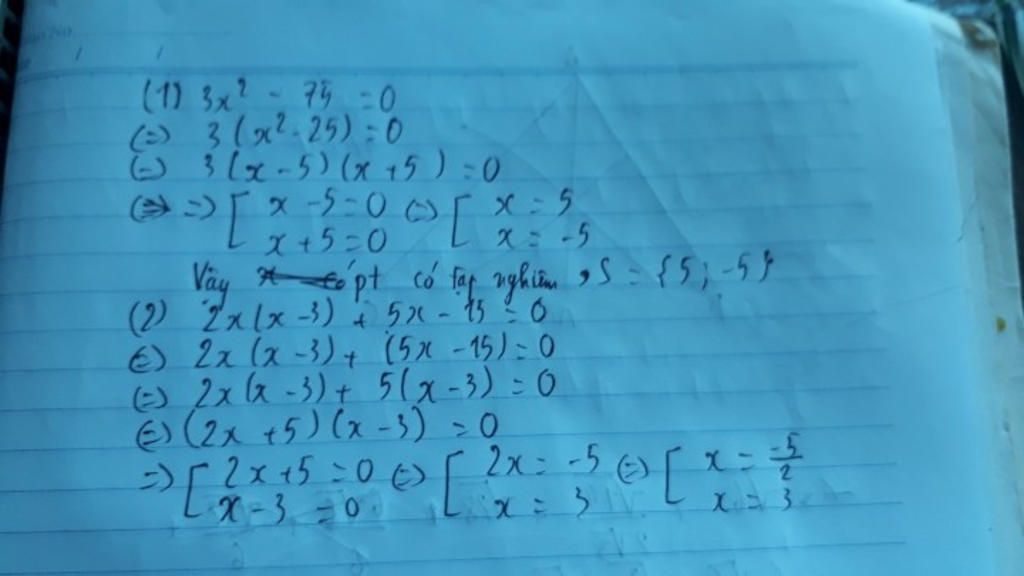 (1) 3x² - 75 = 0
(=) 3(x² - 25) = 0
(=) 3(x - 5)(x + 5) = 0
=) [ x - 5 = 0 (=) [ x = 5
x + 5 = 0 x = -5
Vậy pt có tập nghiệm S = {5; -5}
(2) 2x(x - 3) + 5x - 15 = 0
(=) 2x(x - 3) + (5x - 15) = 0
(=) 2x(x - 3) + 5(x - 3) = 0
(=) (2x + 5)(x - 3) = 0
=) [ 2x + 5 = 0 (=) [ 2x = -5 (=) [ x = -5/2
x - 3 = 0 x = 3 x = 3